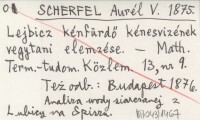 SCHERFEL Aurél V. 1875.
Lejbicz kénfürdő kénesvizének
vegytani elemzése. — Math.
Term.-tudom. Közlem. 13, nr 9.
Też odb.: Budapest 1876.
Analiza wody siarczanej z
Lubicy na Spiszu.